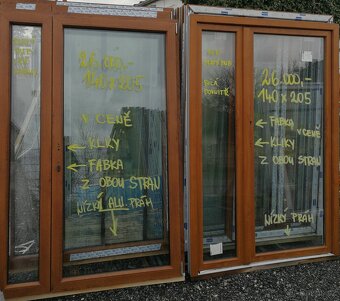 26.000,-
140 x 205
V CENĚ
← KLIKY
← FABKA
Z OBOU STRAN
NÍZKÝ ALU. PRÁH
BÍLÁ
DOVNITŘ
26.000,-
140 x 205
← FABKA V CENĚ
← KLIKY
FABKA
Z OBOU STRAN
NÍZKÝ PRÁH